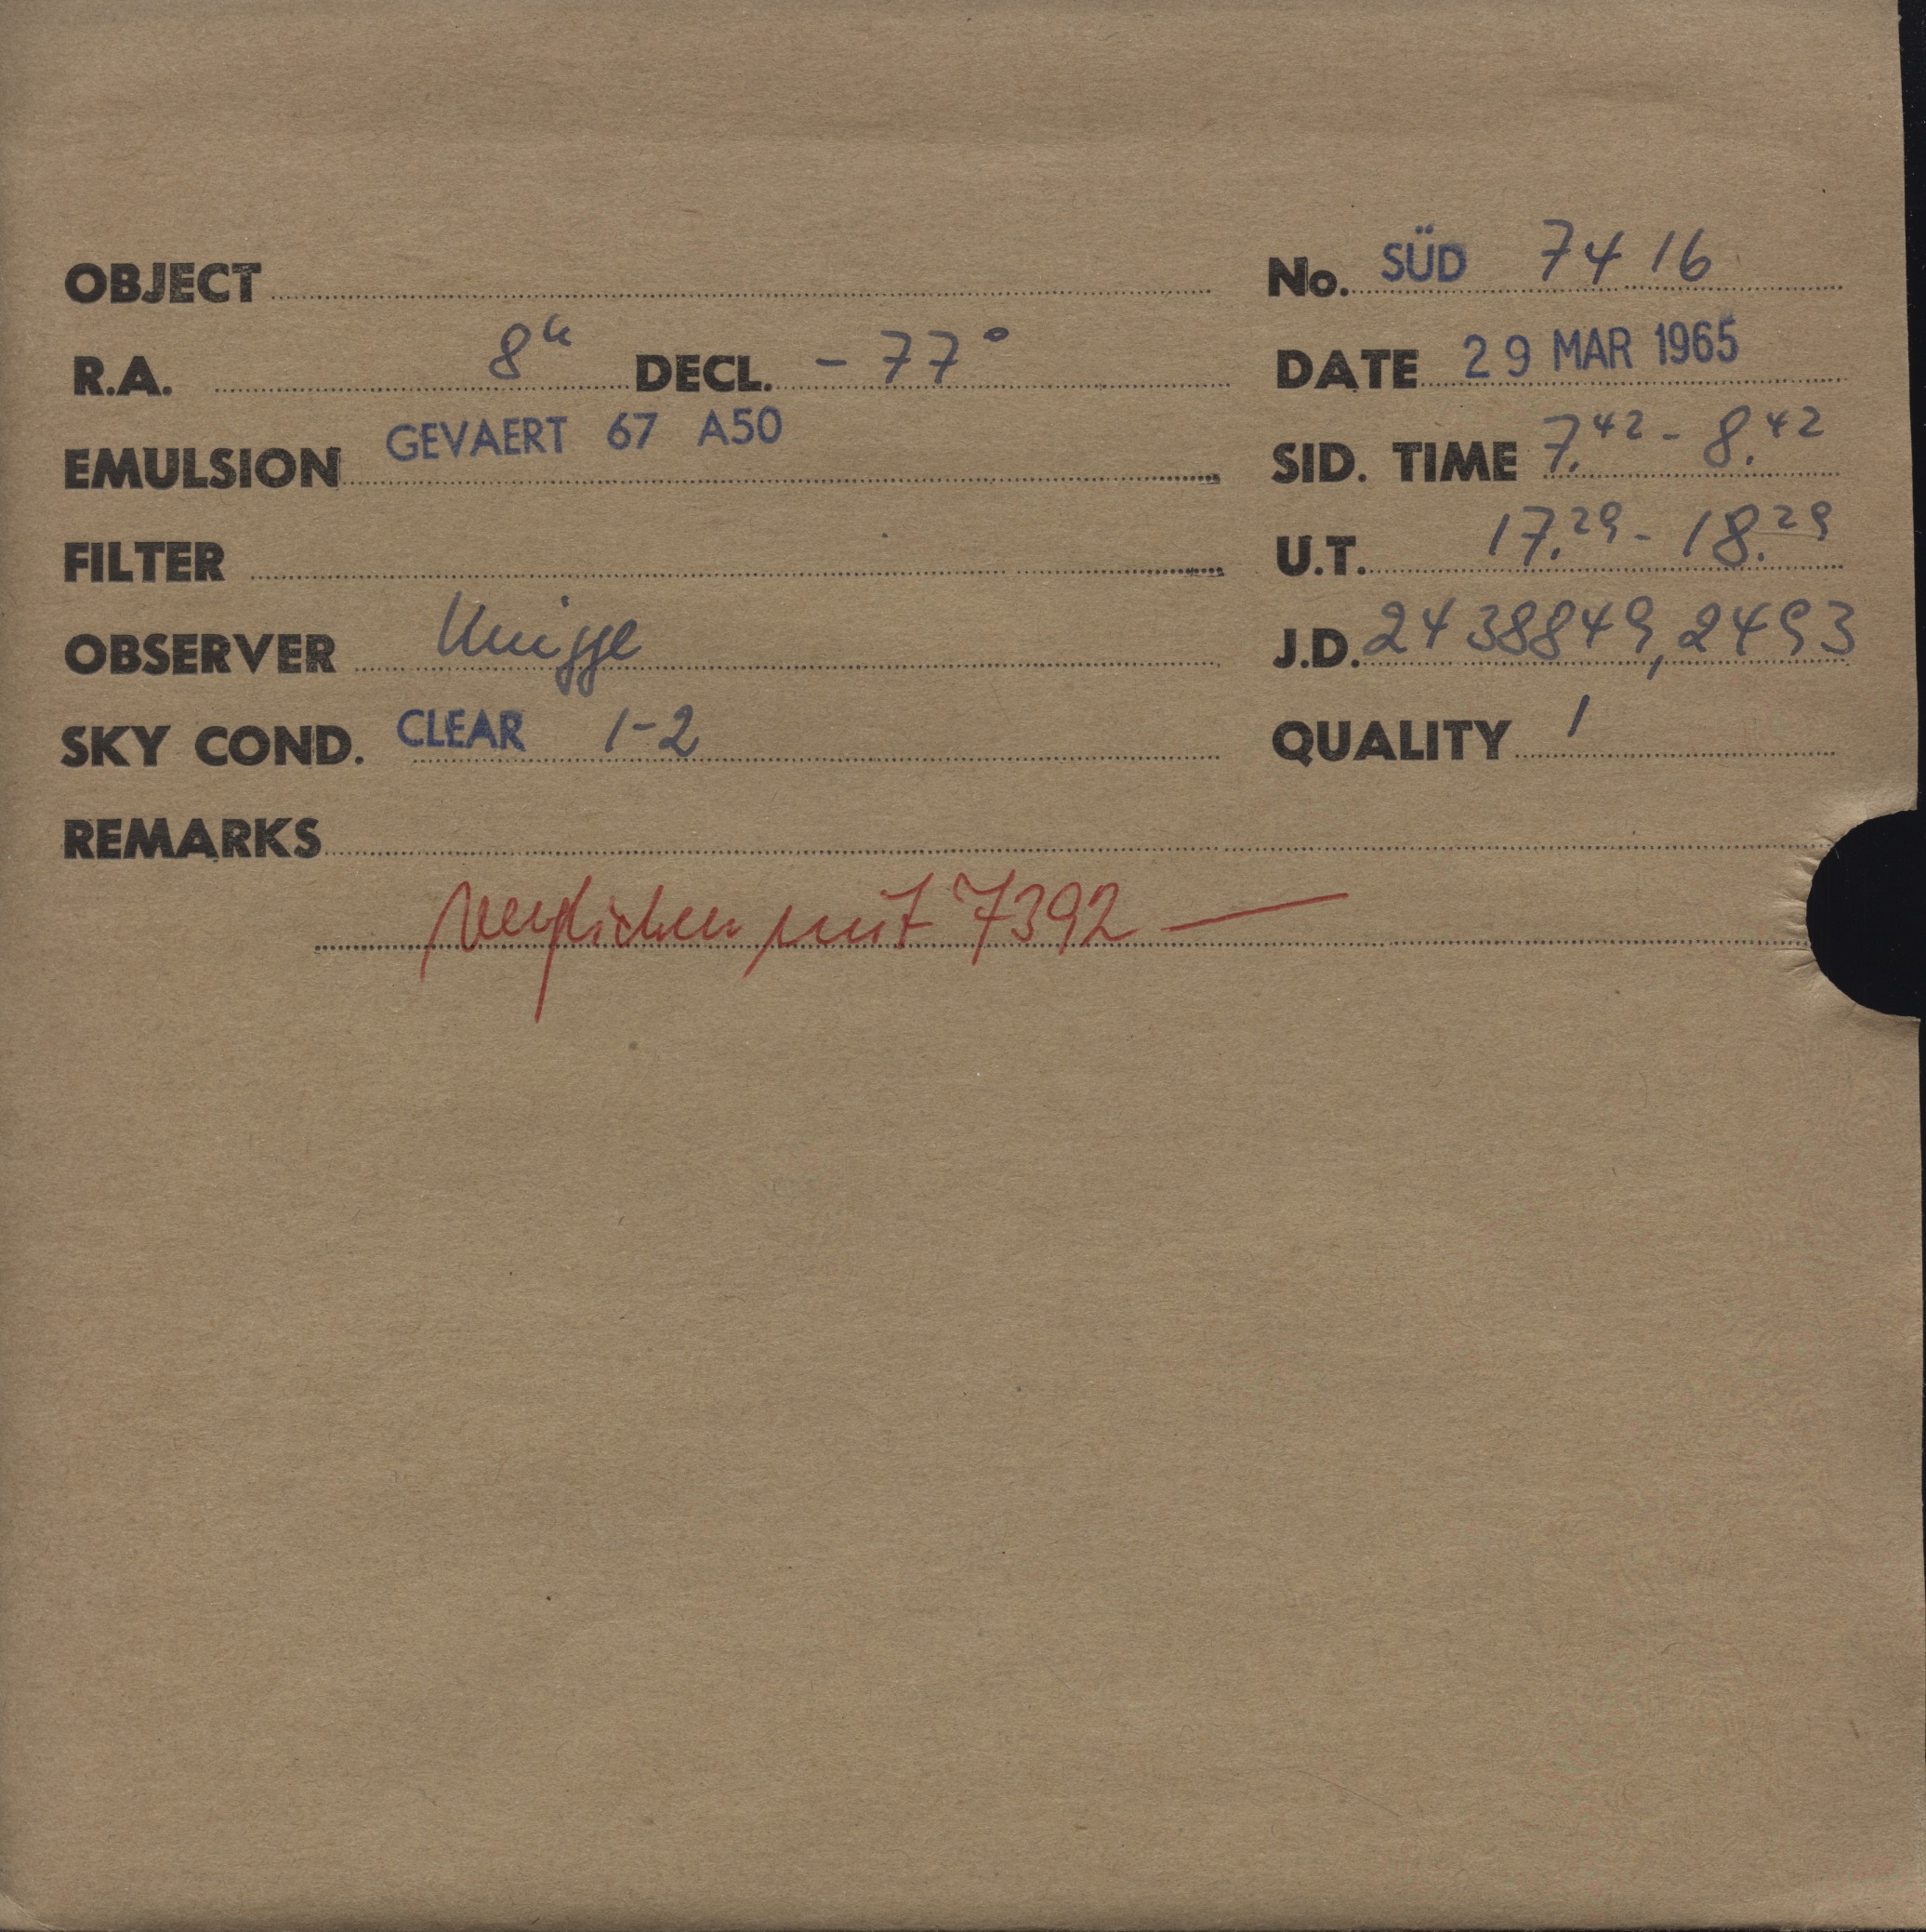 OBJECT No. SÜD 7416
R.A. 8h DECL. - 77° DATE 29 MAR 1965
EMULSION GEVAERT 67 A50 SID. TIME 7.42 - 8.42
FILTER U.T. 17.29 - 18.29
OBSERVER Knigge J.D. 2438849,2493
SKY COND. CLEAR 1-2 QUALITY 1
REMARKS
verglichen mit 7392 —